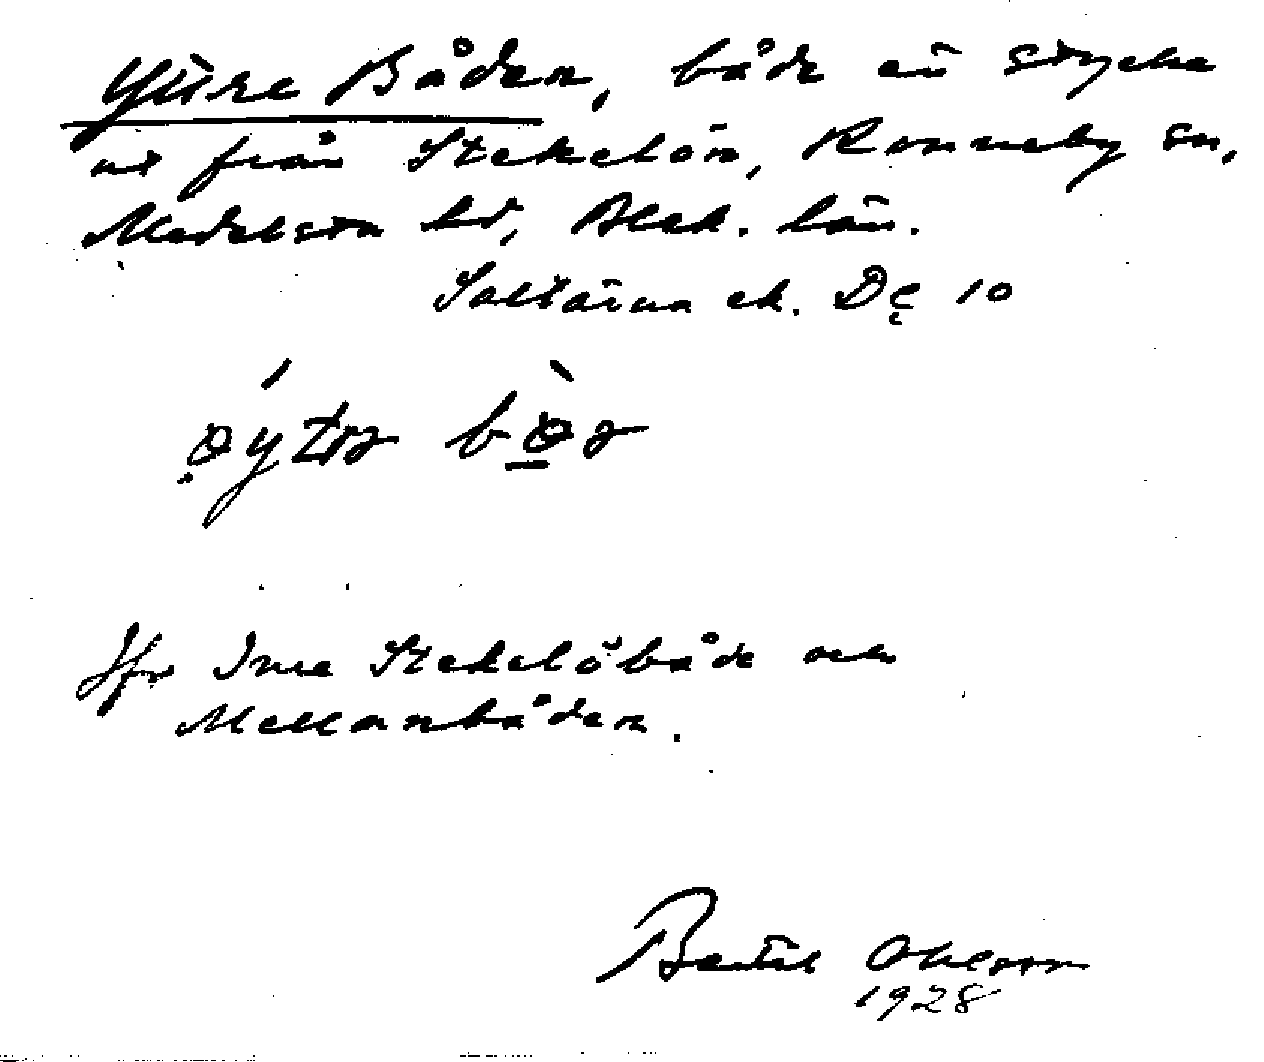 Yttre Båden, både ett stycke
ut från Stekelön, Ronneby sn,
Medelsta hd, Blek. län.
Saltärna ek. Dc 10
Jfr Inre Stekelöbåde och
Mellanbåden.
Bertil Ohlsson
1928